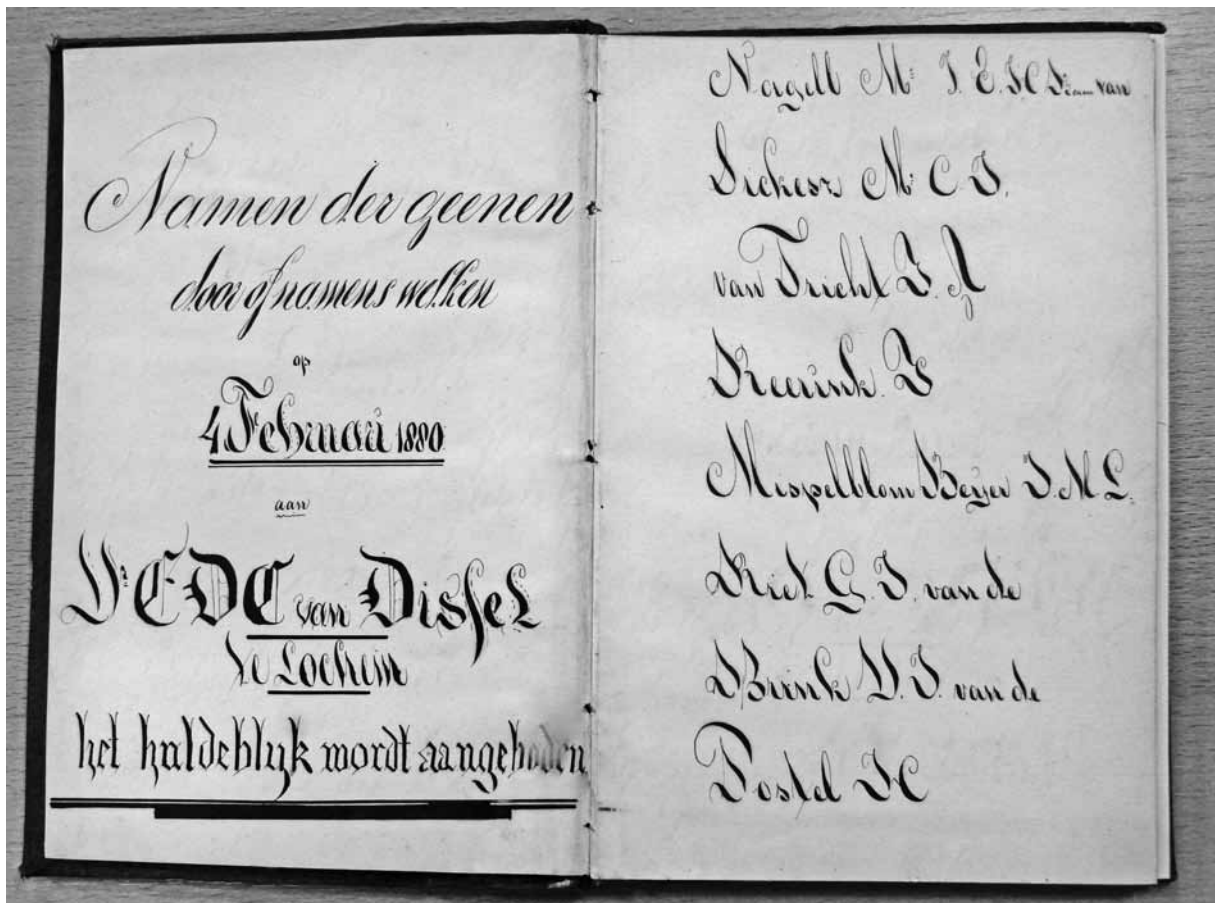 Namen der geenen
door of namens welken
op
4 Februari 1880
aan
Dr. E D C van Dissel
te Lochem
het huldeblijk wordt aangeboden
Nagell Mr. J. E. van
Sickesz Mr. C. J.
van Tricht J. A
Reerink J
Mispelblom Beyer J. M L.
Kret G. J. van de
Brink D. J. van de
Postel H C